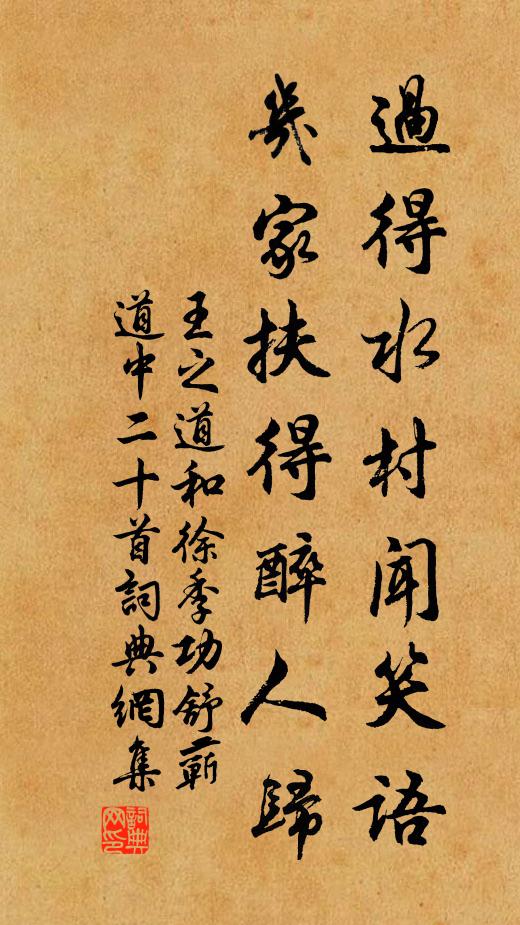 過得水村聞笑語
幾家扶得醉人歸
王之道和徐季功舒蘄
道中二十首詞典網集
詞典网印